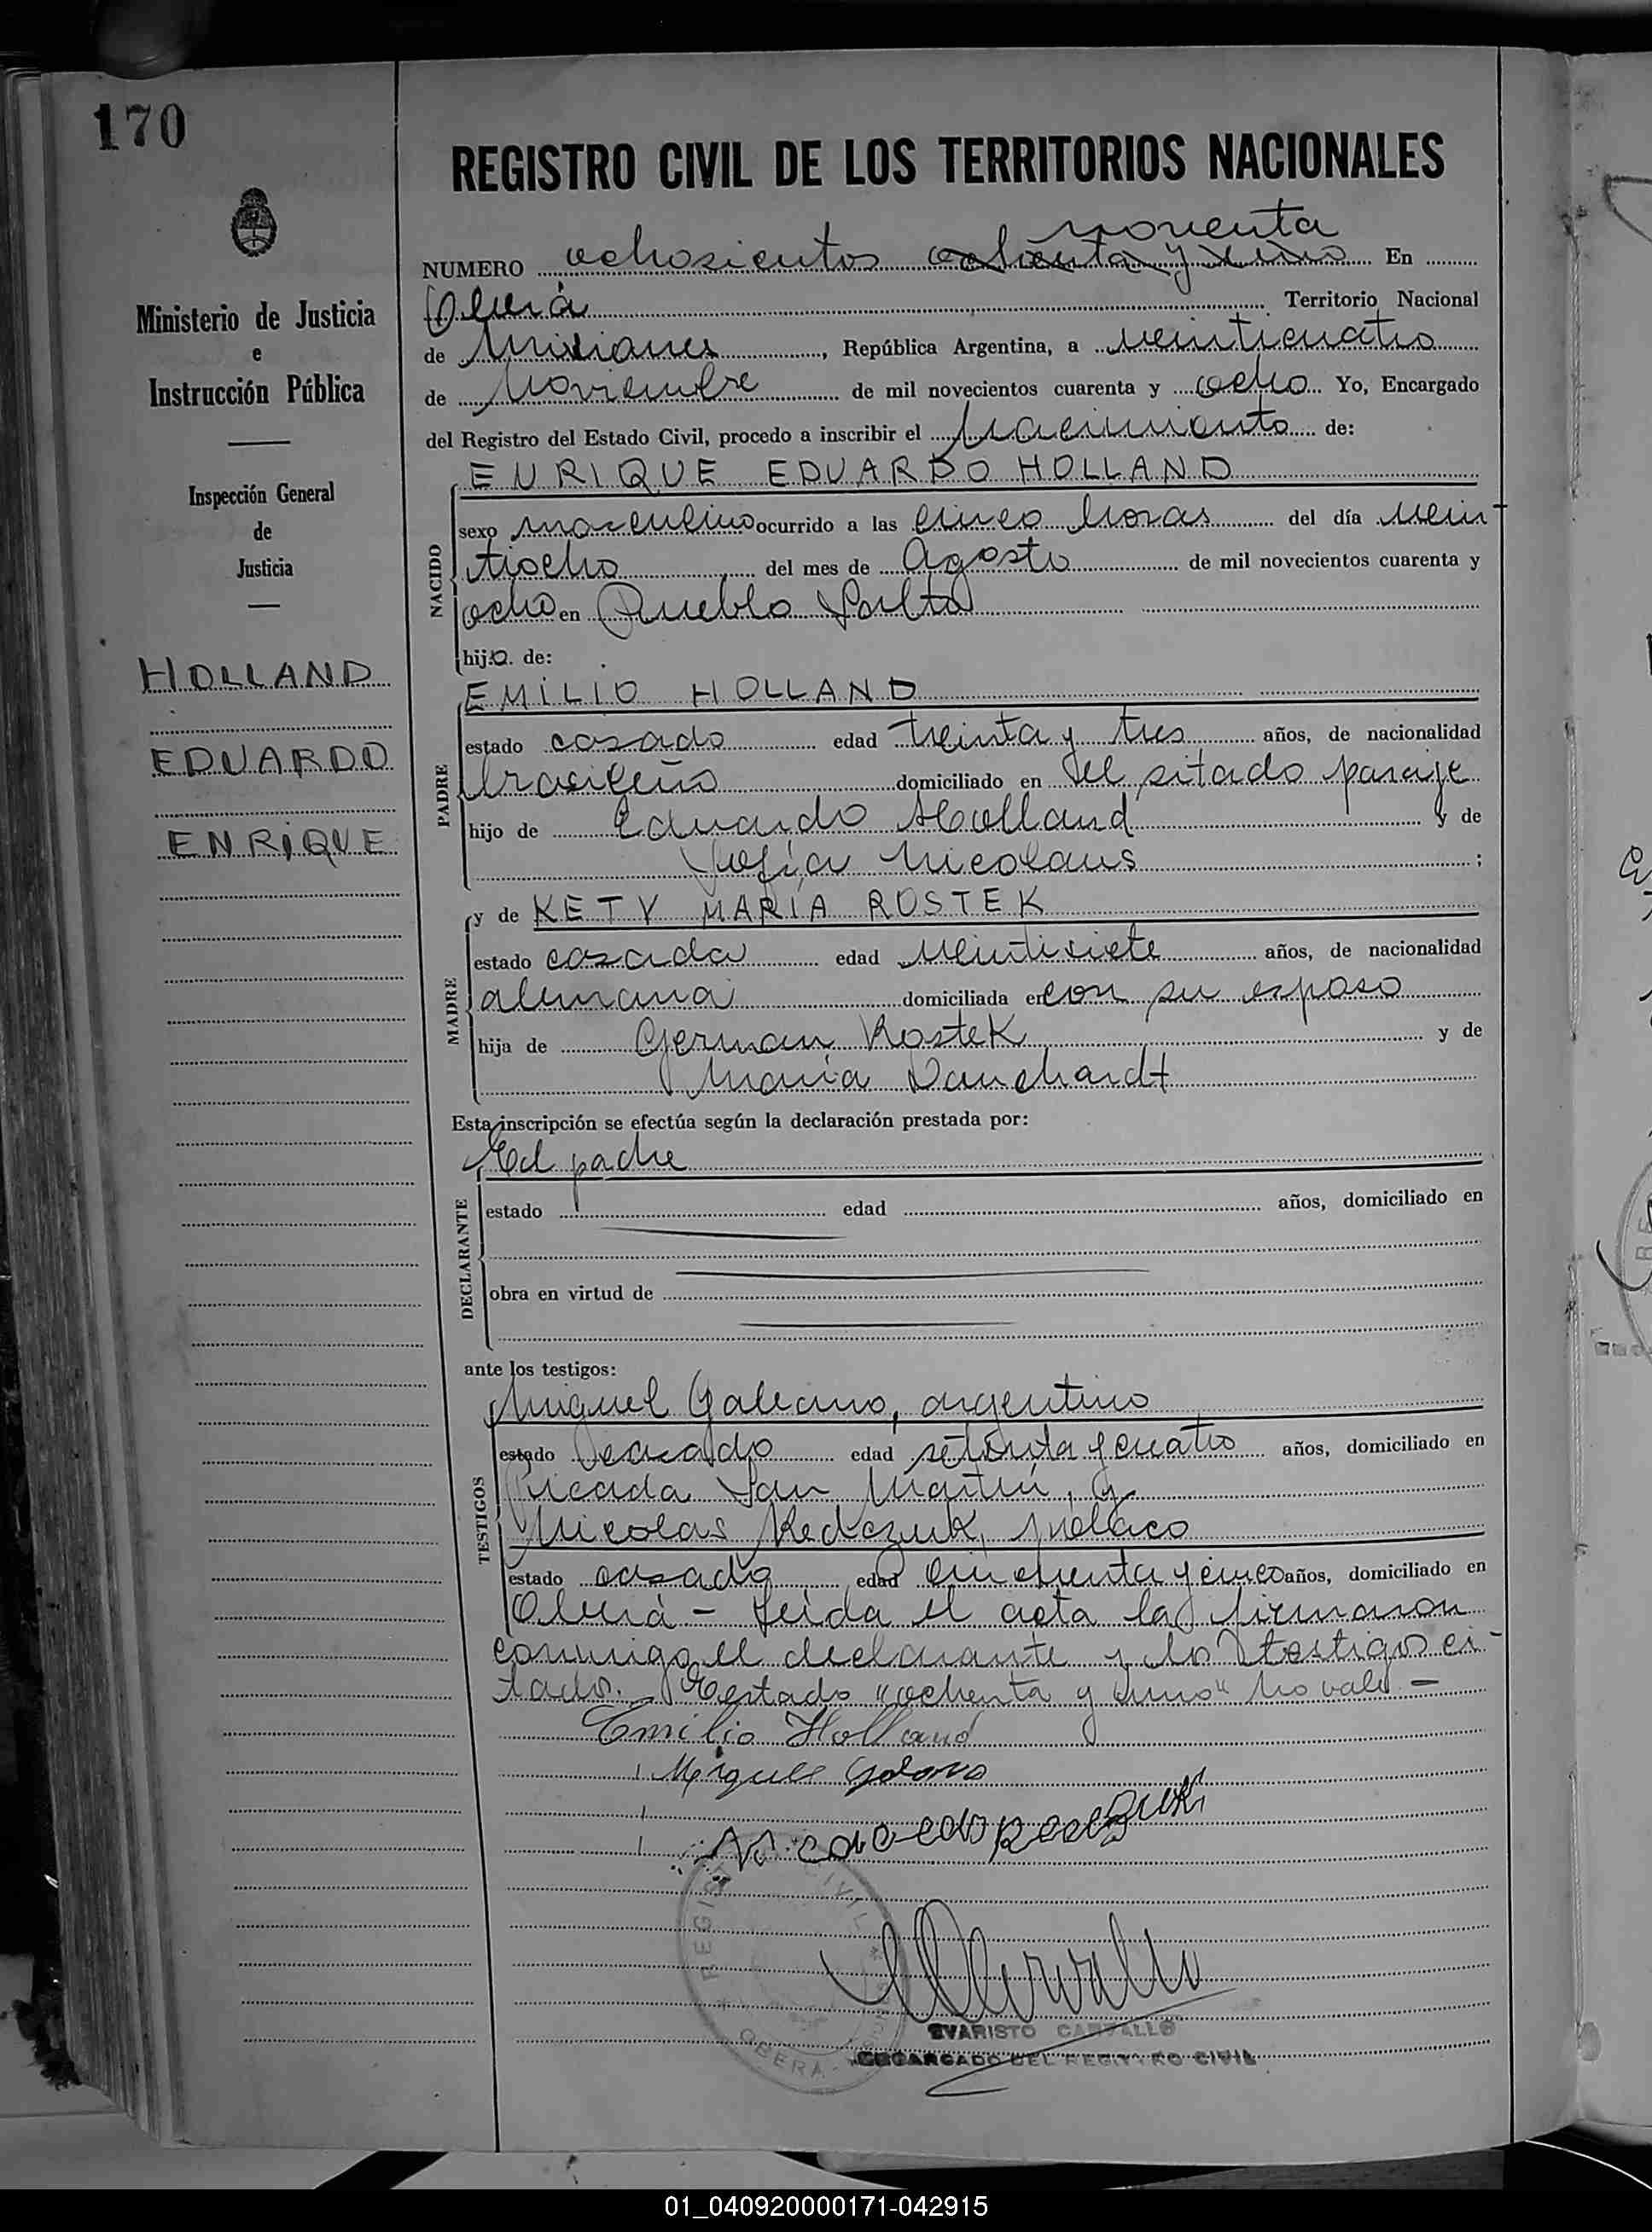 170
REGISTRO CIVIL DE LOS TERRITORIOS NACIONALES
noventa
NUMERO ochosientos ochenta y uno En
Oberá Territorio Nacional
de Misiones, República Argentina, a veinticuatro
de Noviembre de mil novecientos cuarenta y ocho Yo, Encargado
del Registro del Estado Civil, procedo a inscribir el Nacimiento de:
Ministerio de Justicia
e
Instrucción Pública
Inspección General
de
Justicia
HOLLAND
EDUARDO
ENRIQUE
NACIDO
ENRIQUE EDUARDO HOLLAND
sexo masculino ocurrido a las cinco horas del día vein
tiocho del mes de Agosto de mil novecientos cuarenta y
ocho en Pueblo Salto
hijo. de:
PADRE
EMILIO HOLLAND
estado casado edad treinta y tres años, de nacionalidad
brasileño domiciliado en el sitado paraje
hijo de Eduardo Holland y de
Sofía Nicolaus ;
MADRE
y de KETY MARÍA ROSTEK
estado casada edad veintisiete años, de nacionalidad
alemana domiciliada en con su esposo
hija de German Rostek y de
María Danchardt
Esta inscripción se efectúa según la declaración prestada por:
DECLARANTE
El padre
estado edad años, domiciliado en
obra en virtud de
ante los testigos:
TESTIGOS
Miguel Galeano, argentino
estado casado edad setenta y cuatro años, domiciliado en
Picada San Martín, y
Nicolas Redczuk, polaco
estado casado edad cincuenta y cinco años, domiciliado en
Oberá - Leida el acta la firmaron
conmigo el declarante y los testigos ci-
tados. - Testado "ochenta y uno" no vale -
Emilio Holland
Miguel
REGISTRO CIVIL
OBERÁ
EVARISTO CARVALLO
ENCARGADO DEL REGISTRO CIVIL
01_040920000171-042915